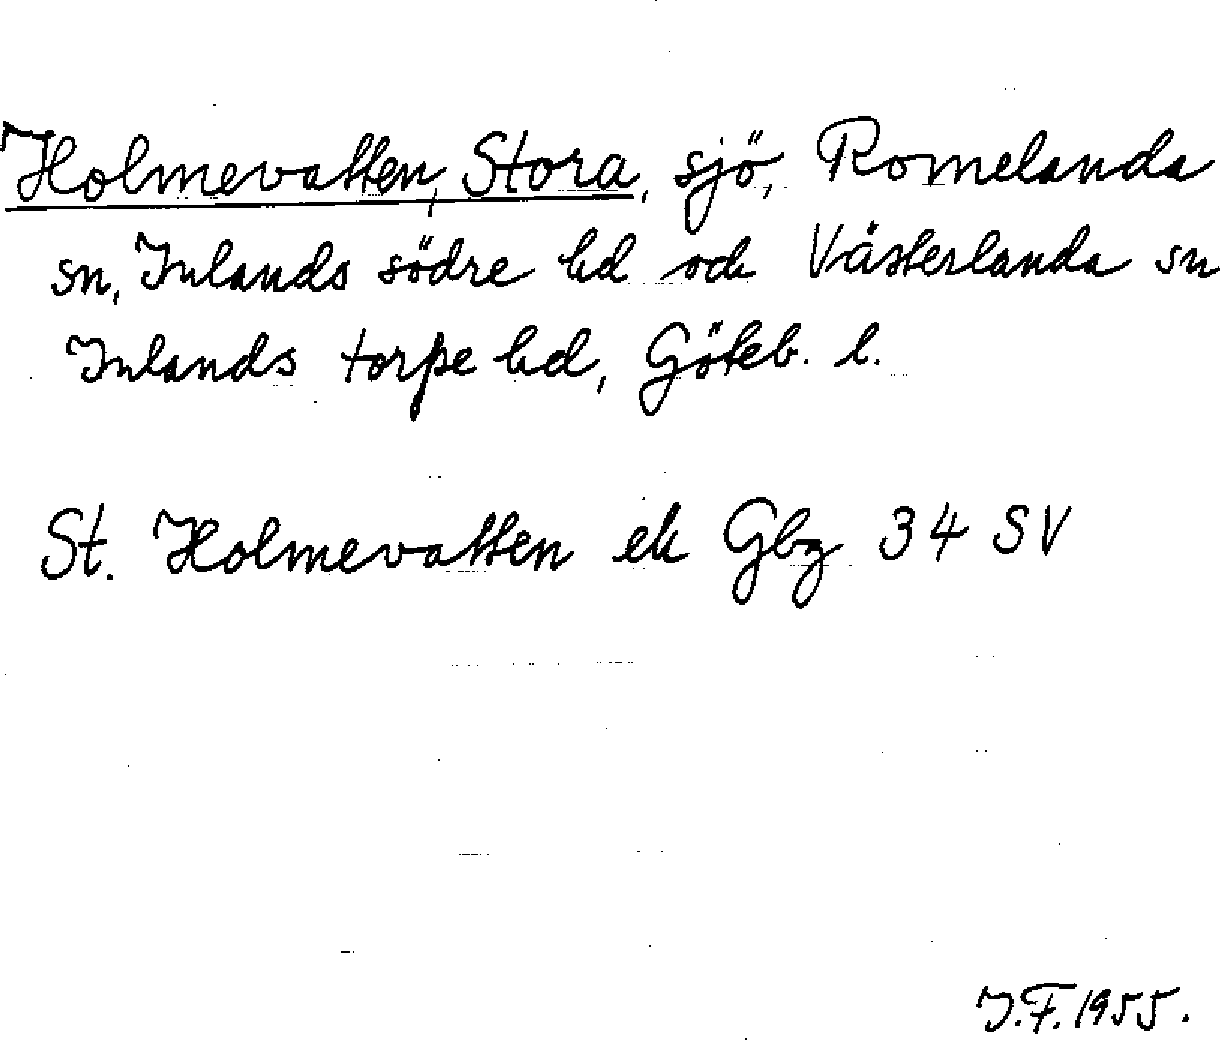 Holmevatten, Stora, sjö, Romelanda
sn, Inlands södre hd och Västerlanda sn
Inlands torpe hd, Göteb. l.
St. Holmevatten ek Gbg 34 SV
J.F. 1955.